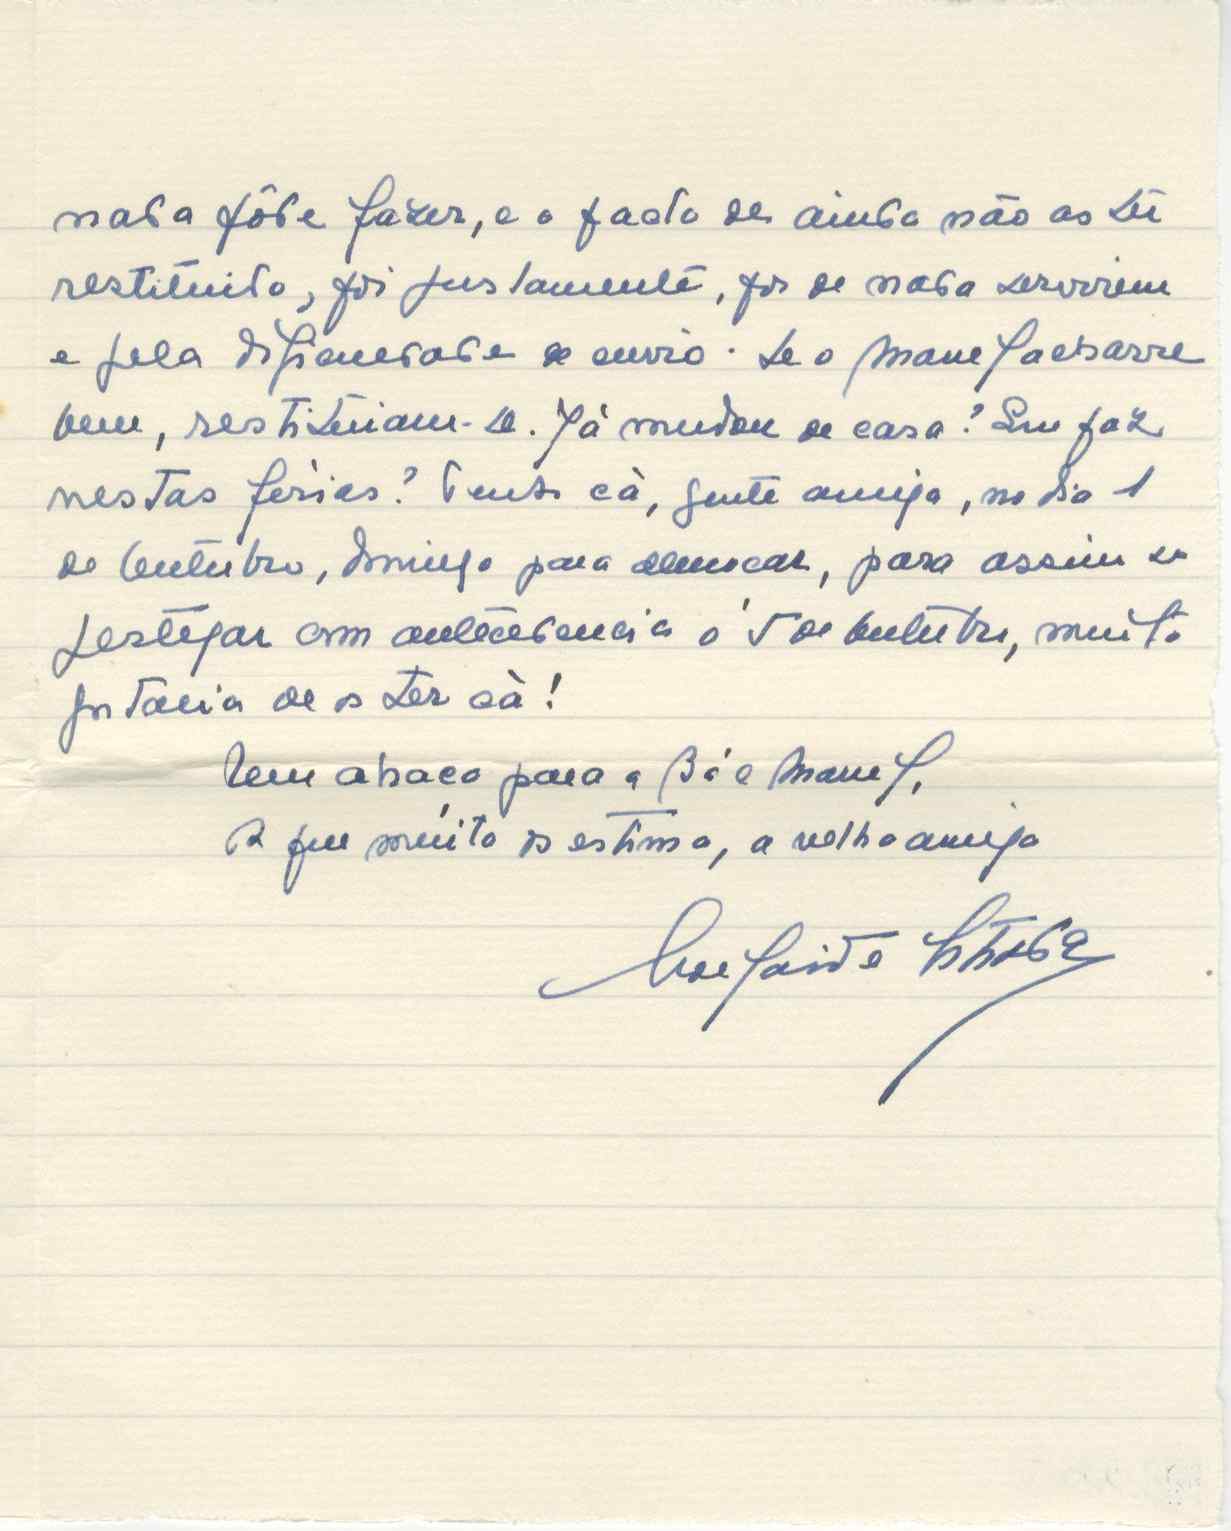 nada pôde fazer, e o facto de ainda não as ter
restituido, foi justamente, por de nada servirem
e pela dificuldade de envio. Se o Manel achasse
bem, restituiam-se. Já mudou de casa? Que faz
nestas férias? Tenho cá, gente amiga, no dia 1
de Outubro, domingo para almoçar, para assim se
festejar com antecedencia o 5 de Outubro, muito
gostaria de os ter cá!
Um abraço para a Bá e Manel,
da que muito os estima, a velha amiga